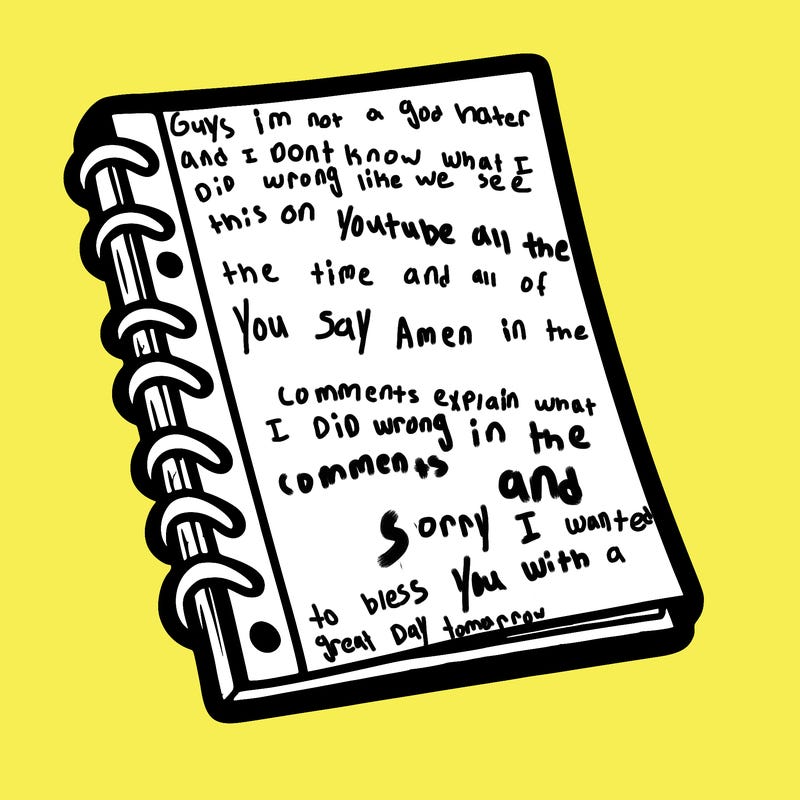 Guys im not a god hater
and I Dont know what I
DiD wrong like we see
this on Youtube all the
the time and all of
You Say Amen in the
comments explain what
I DiD wrong in the
comments and
Sorry I wanted
to bless You with a
great Day tomorrow